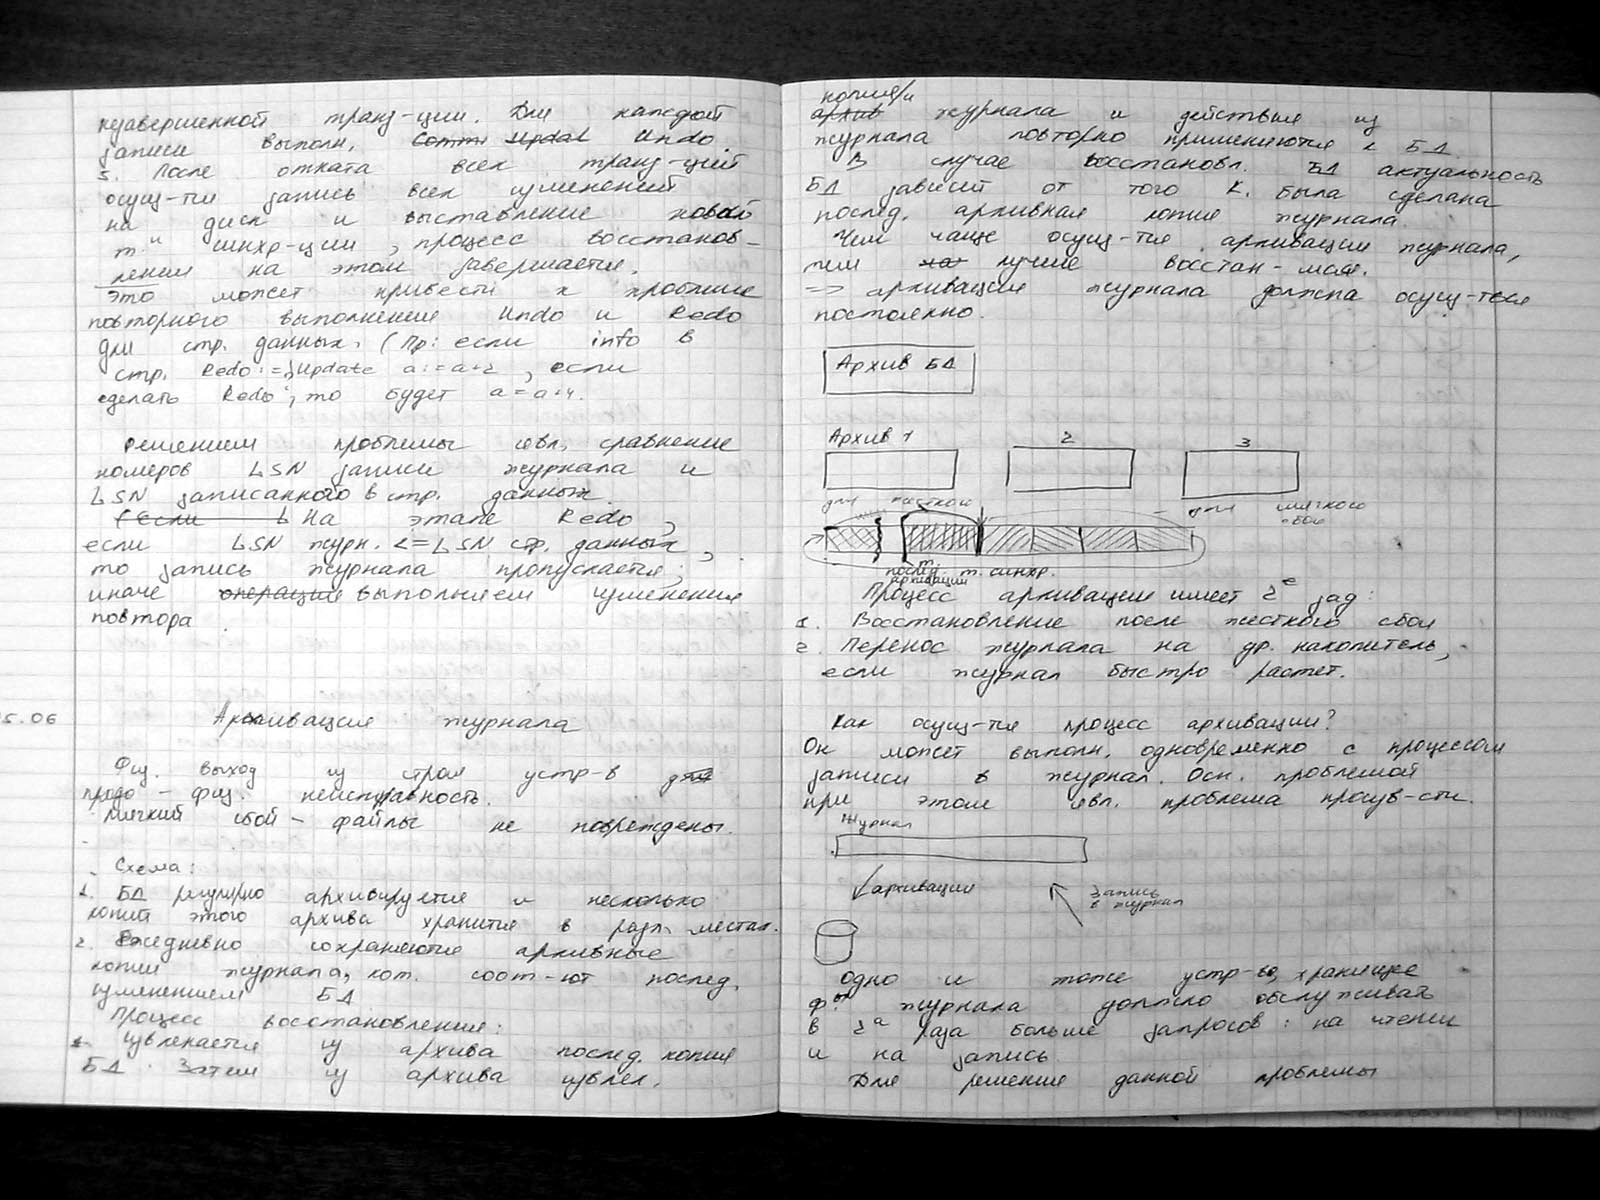 незавершенной транз-ции. Для каждой
записи выполн. Comm Updat Undo.
5. После отката всех транз-ций
осущ-тся запись всех изменений
на диск и выставление новой
т.и синхр-ции, процесс восстанов-
ления на этом завершается.
Это может привести к проблеме
повторного выполнения Undo и Redo
для стр. данных. (Пр: если info в
стр. Redo:=; Update a:=a+2, если
сделать Redo; то будет a=a+4.
Решением проблемы явл. сравнение
номеров LSN записи журнала и
LSN записанного в стр. данных.
(Если L На этапе Redo,
если LSN журн. <= LSN стр. данных,
то запись журнала пропускается;
иначе операция выполняем изменения
повтора
5.06
Архивация журнала
Физ. выход из строя устр-в для
- физ. неисправность.
Мягкий сбой - файлы не повреждены.
Схема:
1. БД регулярно архивируется и несколько
копий этого архива хранится в разл. местах.
2. Ежедневно сохраняются архивные
копии журнала, кот. соот-ют послед.
изменениям БД
Процесс восстановления:
извлекается из архива послед. копия
БД. Затем из архива извлек.
копия/и
архив журнала и действия из
журнала повторно применяются к БД.
В случае восстановл. БД актуальность
БД зависит от того к. была сделана
послед. архивная копия журнала.
Чем чаще осущ-тся архивация журнала,
тем лучше восстан-мая.
=> архивация журнала должна осущ-ться
постоянно.
Архив БД
Архив 1 2 3
для жесткого для мягкого
сбоя
послед. т. синхр.
архивации
Процесс архивации имеет 2е зад:
1. Восстановление после жесткого сбоя
2. Перенос журнала на др. накопитель,
если журнал быстро растет.
Как осущ-тся процесс архивации?
Он может выполн. одновременно с процессом
записи в журнал. Осн. проблемой
при этом явл. проблема произв-сти.
Журнал
архивация
Запись
в журнал
Одно и тоже устр-во, хранящее
журнала должно обслуживать
в 2а раза больше запросов: на чтение
и на запись.
Для решение данной проблемы